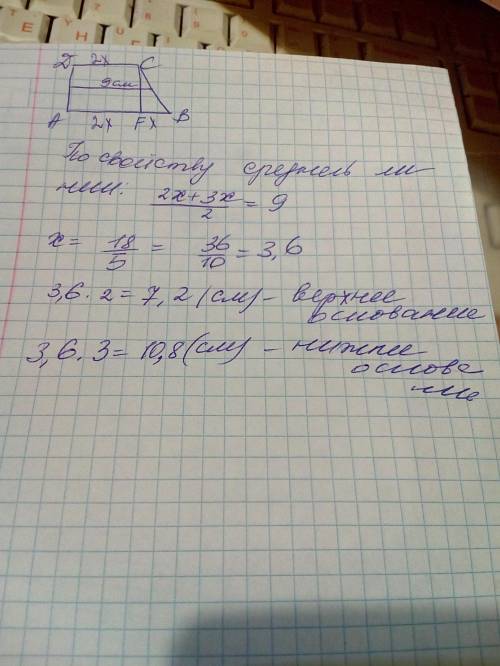 D 2x C
9см
A 2x F x B
По свойству средней ли
нии: (2x+3x)/2 = 9
x = 18/5 = 36/10 = 3,6
3,6 · 2 = 7,2 (см) - верхнее
основание
3,6 · 3 = 10,8 (см) - нижнее
основа
ние